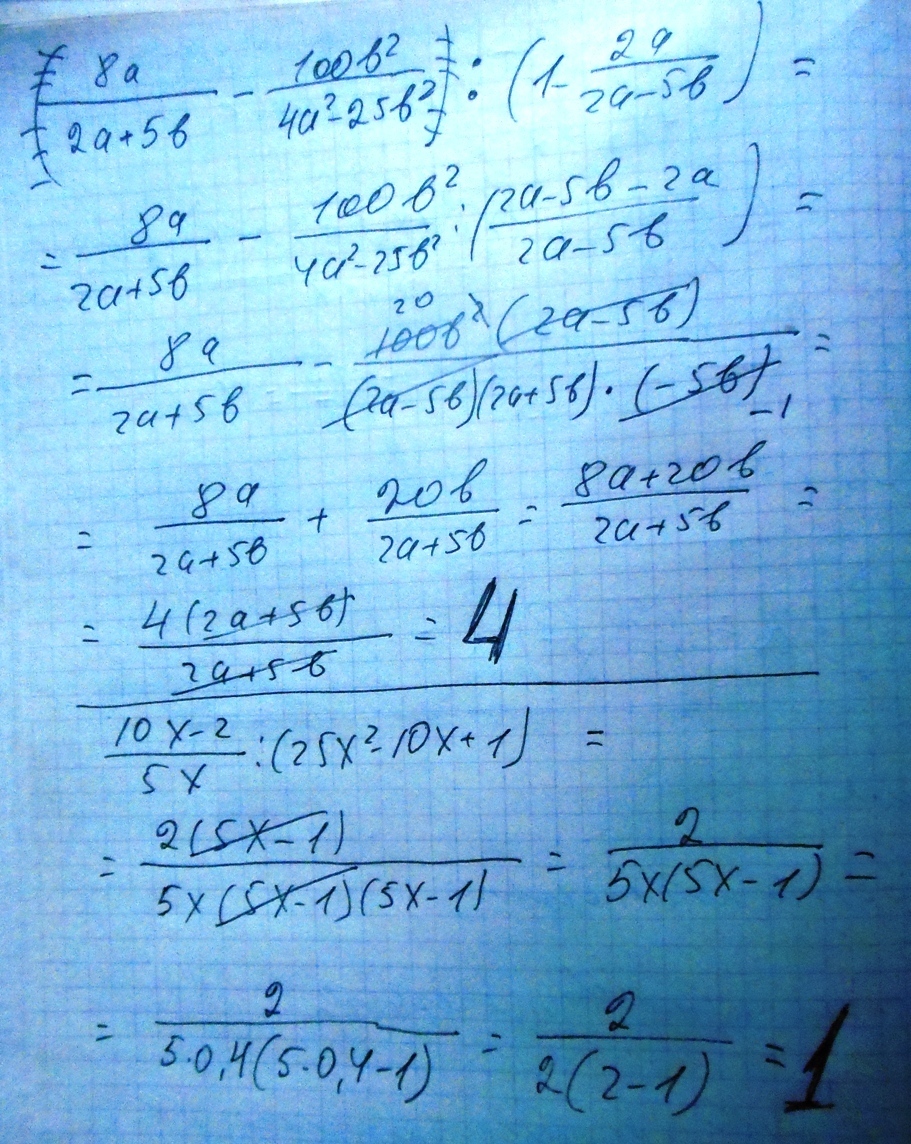 (8a/(2a+5b) - 100b²/(4a²-25b²)) : (1 - 2a/(2a-5b)) =
= 8a/(2a+5b) - 100b²/(4a²-25b²) : ((2a-5b-2a)/(2a-5b)) =
= 8a/(2a+5b) - 20 100b²(2a-5b)/((2a-5b)(2a+5b)·(-5b)) -1 =
= 8a/(2a+5b) + 20b/(2a+5b) = (8a+20b)/(2a+5b) =
= 4(2a+5b)/(2a+5b) = 4
(10x-2)/(5x) : (25x²-10x+1) =
= 2(5x-1)/(5x(5x-1)(5x-1)) = 2/(5x(5x-1)) =
= 2/(5·0,4(5·0,4-1)) = 2/(2(2-1)) = 1